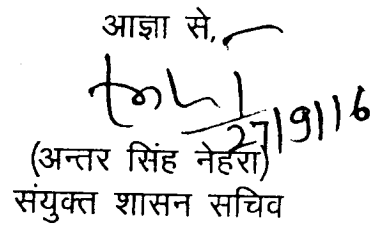 आज्ञा से,
27/9/16
(अन्तर सिंह नेहरा)
संयुक्त शासन सचिव